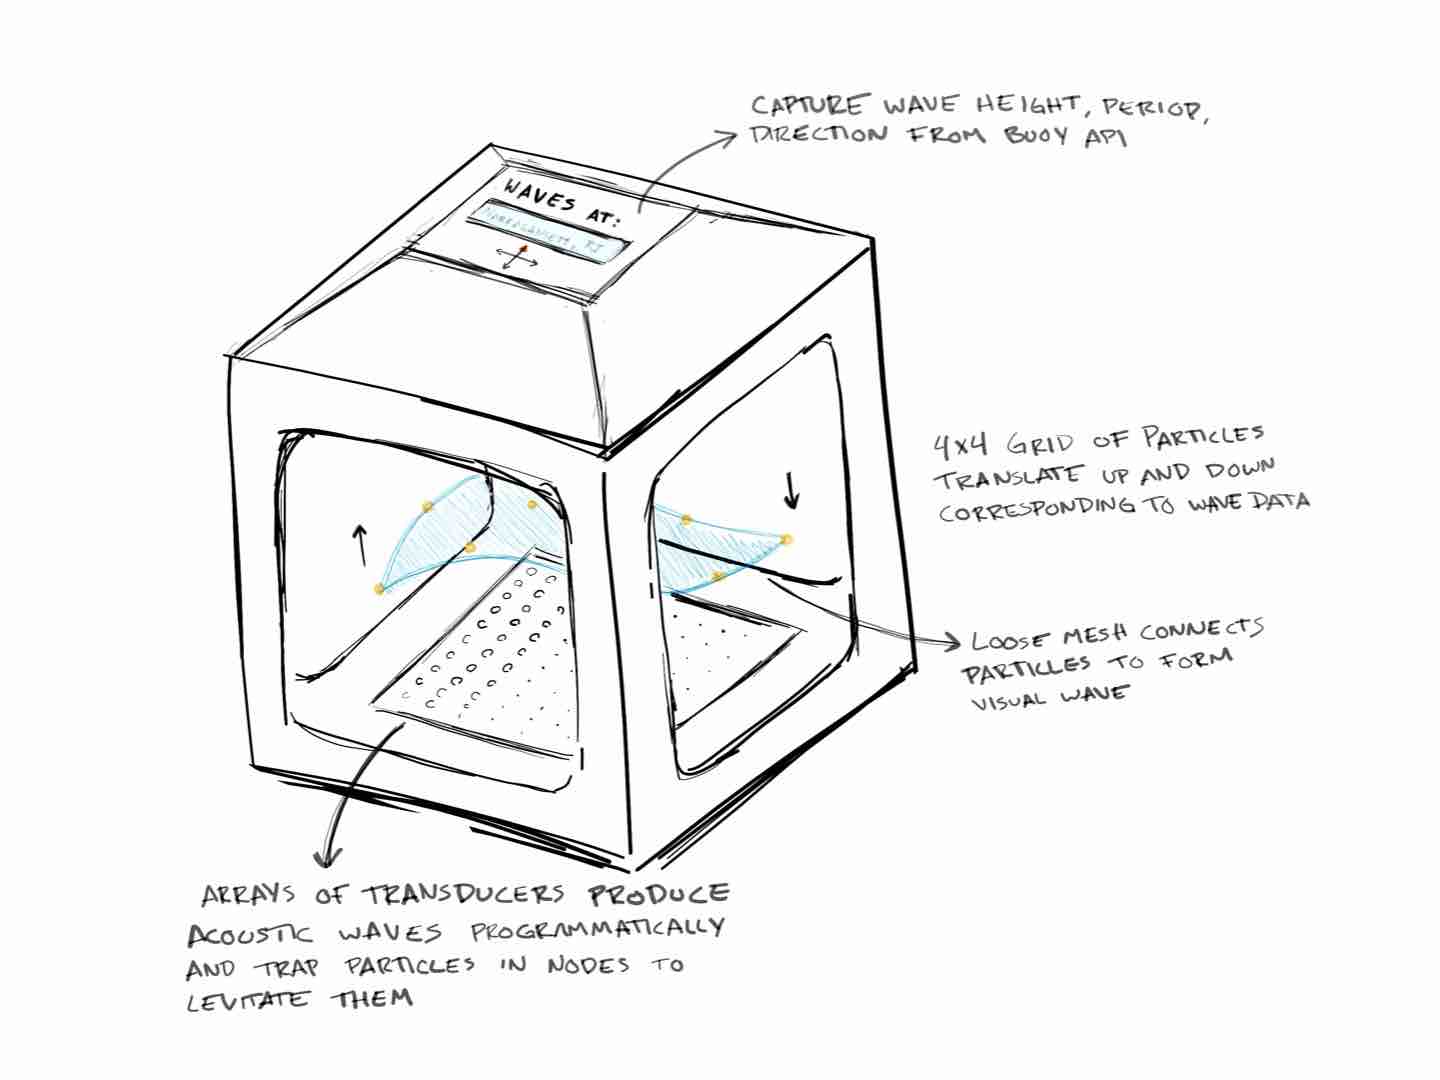 CAPTURE WAVE HEIGHT, PERIOD,
DIRECTION FROM BUOY API
WAVES AT:
NARRAGANSETT, RI
4x4 GRID OF PARTICLES
TRANSLATE UP AND DOWN
CORRESPONDING TO WAVE DATA
LOOSE MESH CONNECTS
PARTICLES TO FORM
VISUAL WAVE
ARRAYS OF TRANSDUCERS PRODUCE
ACOUSTIC WAVES PROGRAMMATICALLY
AND TRAP PARTICLES IN NODES TO
LEVITATE THEM